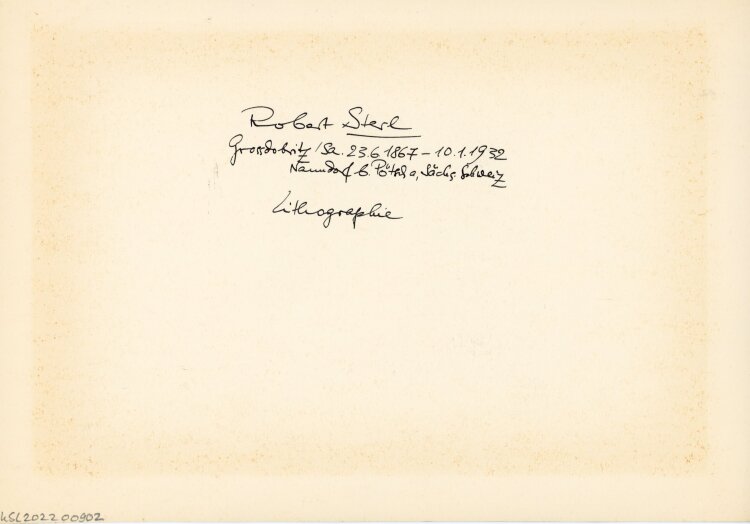 Robert Sterl
Grossdobritz/Sa. 23.6.1867 – 10.1.1932
Naundorf b. Pötscha, Sächs. Schweiz
Lithographie
KSL2022 00902